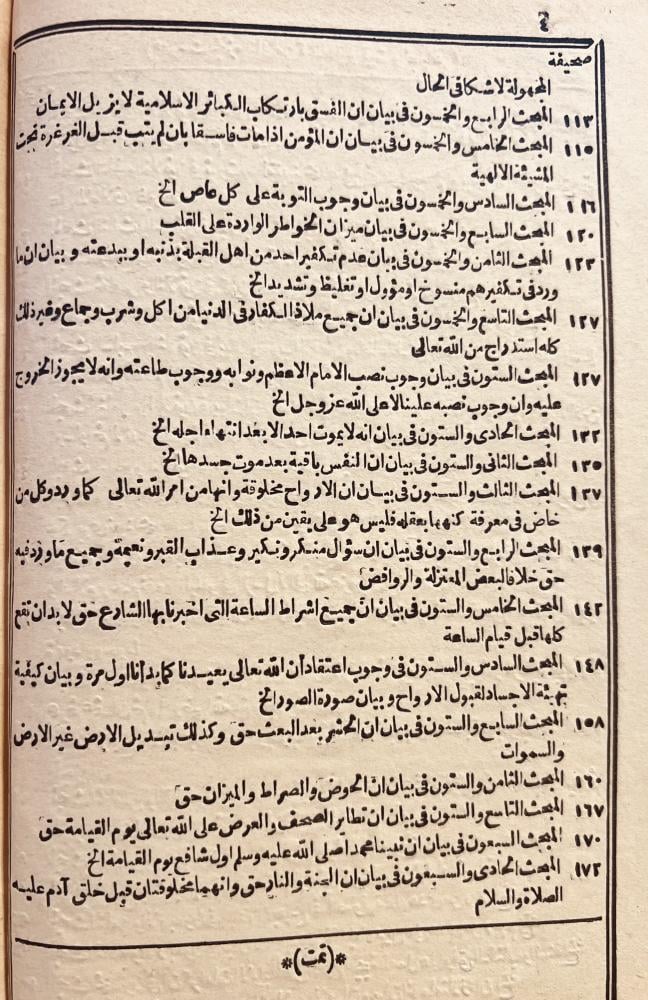 ٤
صحيفة
المجهولة لاشكافى الحال
١١٣ المبحث الرابع والخمسون فى بيان ان الفسق بارتكاب الكبائر الاسلامية لا يزيل الايمان
١١٥ المبحث الخامس والخمسون فى بيان ان المؤمن اذا مات فاسقا بان لم يتب قبل الغرغرة تحت
المشيئة الالهية
١١٦ المبحث السادس والخمسون فى بيان وجوب التوبة على كل عاص الخ
١٢٠ المبحث السابع والخمسون فى بيان ميزان الخواطر الواردة على القلب
١٢٣ المبحث الثامن والخمسون فى بيان عدم تكفير احد من اهل القبلة بذنبه او ببدعته وبيان ان ما
ورد فى تكفيرهم منسوخ او مؤول او تغليظ وتشديد الخ
١٢٧ المبحث التاسع والخمسون فى بيان ان جميع ملاذ الكفار فى الدنيا من اكل وشرب وجماع وغير ذلك
كله استدراج من الله تعالى
١٢٧ المبحث الستون فى بيان وجوب نصب الامام الاعظم ونوابه ووجوب طاعته وانه لا يجوز الخروج
عليه وان وجوب نصبه علينا لا على الله عز وجل الخ
١٣٢ المبحث الحادى والستون فى بيان انه لا يموت احد الا بعد انتهاء اجله الخ
١٣٥ المبحث الثانى والستون فى بيان ان النفس باقية بعد موت جسدها الخ
١٣٧ المبحث الثالث والستون فى بيان ان الارواح مخلوقة وانها من امر الله تعالى كما ورد وكل من
خاض فى معرفة كنهها بعقله فليس هو على يقين من ذلك الخ
١٣٩ المبحث الرابع والستون فى بيان ان سؤال منكر ونكير وعذاب القبر ونعيمه وجميع ما ورد فيه
حق خلافا لبعض المعتزلة والروافض
١٤٢ المبحث الخامس والستون فى بيان ان جميع اشراط الساعة التى اخبرنا بها الشارع حق لا بد ان تقع
كلها قبل قيام الساعة
١٤٨ المبحث السادس والستون فى وجوب اعتقاد أن الله تعالى يعيدنا كما بدأنا اول مرة وبيان كيفية
تهيئة الاجساد لقبول الارواح وبيان صورة الصور الخ
١٥٨ المبحث السابع والستون فى بيان ان الحشر بعد البعث حق وكذلك تبديل الارض غير الارض
والسموات
١٦٠ المبحث الثامن والستون فى بيان ان الحوض والصراط والميزان حق
١٦٧ المبحث التاسع والستون فى بيان ان تطاير الصحف والعرض على الله تعالى يوم القيامة حق
١٧٠ المبحث السبعون فى بيان ان نبينا محمدا صلى الله عليه وسلم اول شافع يوم القيامة الخ
١٧٢ المبحث الحادى والسبعون فى بيان ان الجنة والنار حق وانهما مخلوقتان قبل خلق آدم عليه
الصلاة والسلام
*(تمت)*